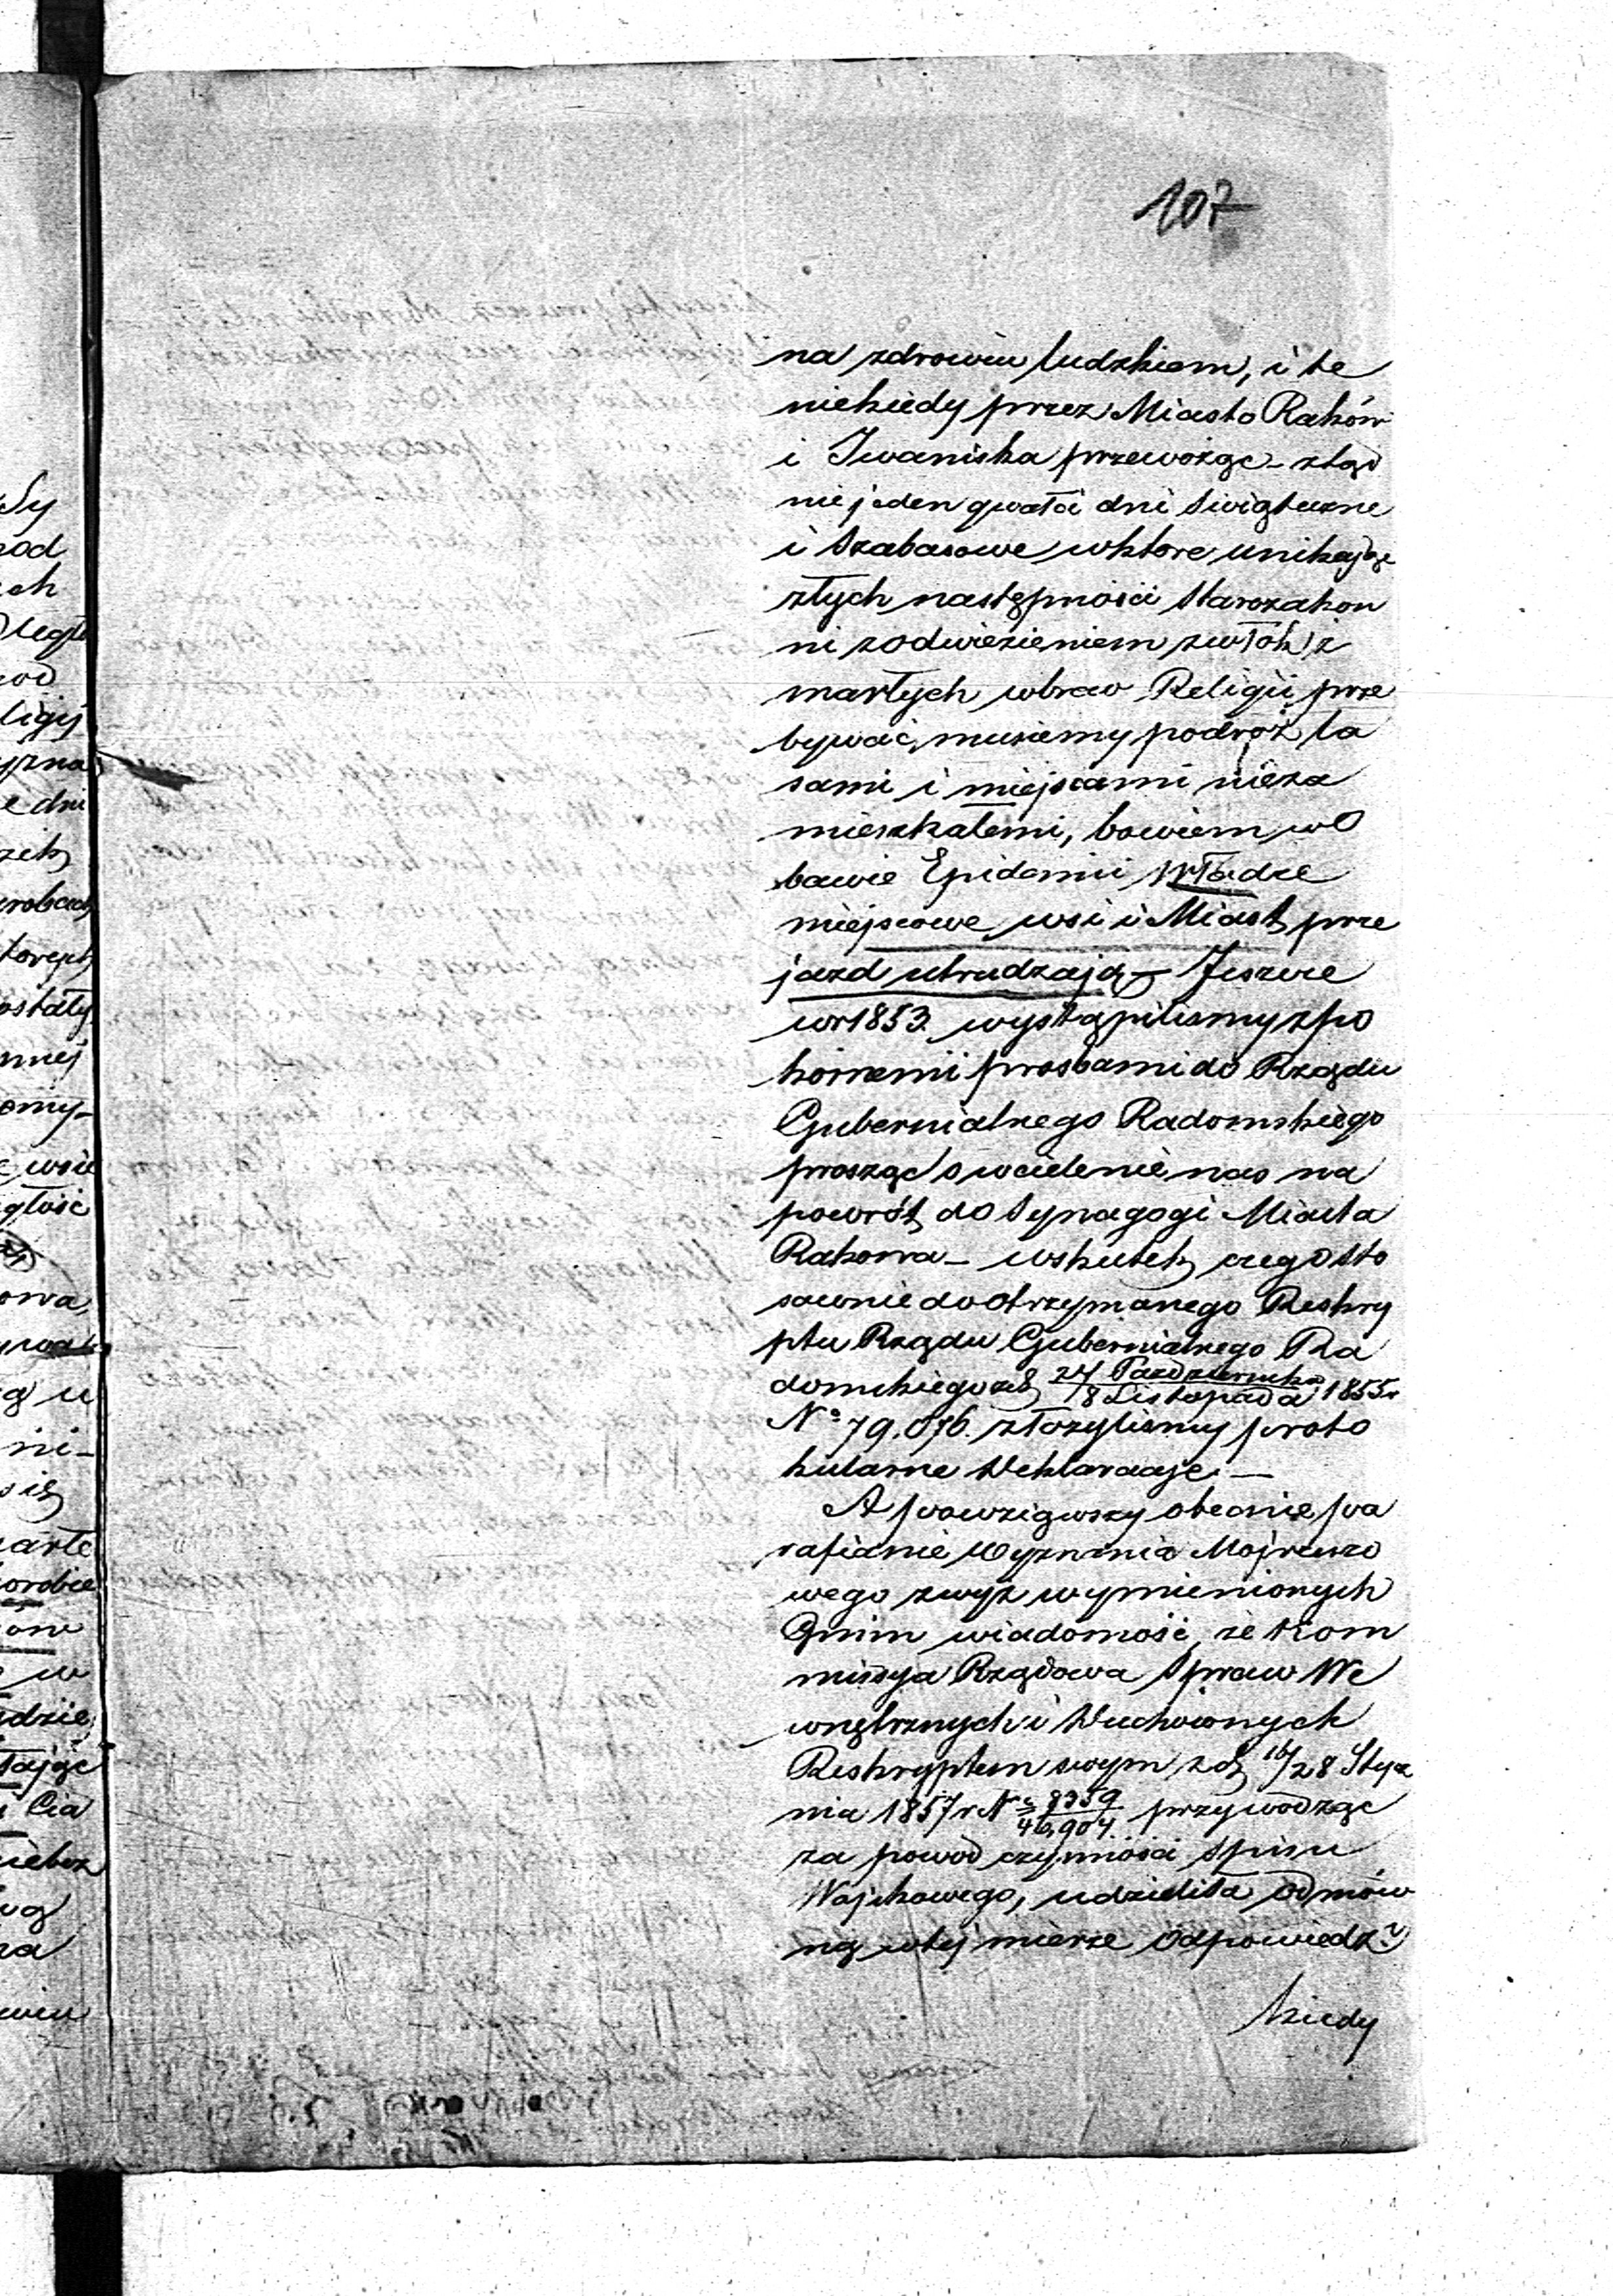 107
na zdrowiu ludzkiem, i te
niekiedy przez Miasto Raków
i Iwaniska przewożąc – ztąd
niejeden gwałci dni Swiąteczne
i Szabasowe wktore unikając
złych następności Starozakon
ni zodwiezieniem zwłok z
martych wbrew Religii prze
bywać musiemy podróż la
sami i miejscami nieza
mieszkałemi, bowiem wo
bawie Epidemii Władze
miejscowe wsi i Miast prze
jazd utrudzają – Jeszcze
wr 1853. wystąpilismy zpo
kornemi prosbami do Rządu
Gubernialnego Radomskiego
prosząc o wcielenie nas na
powrót do Synagogi Miasta
Rakowa – wskutek czego sto
sownie do otrzymanego Reskry
ptu Rządu Gubernialnego Ra
domskiego zd 24 Pazdziernika / 8 Listopada 1855r
No 79.076. złozylismy proto
kularne Deklaracje. –
A powziąwszy obecnie pa
rafianie Wyznania Mojzeszo
wego zwyż wymienionych
Gmin wiadomość, że Kom
missya Rządowa Spraw We
wnętrznych i Duchownych
Reskryptem swym zd 16/28 Stycz
nia 1857 r No 8359 / 46,904. przywodząc
za powod czynności Spisu
Wojskowego, udzieliła odmów
ną wtej mierze odpowiedz
kiedy
Sy
od
ch
ligij
yzna
e dni
torych
ostały
nnej
omy-
wsie
głośc
owa,
g u
ni-
się
orobie
ów
w
dzie
tając
Cia
ra
wiu